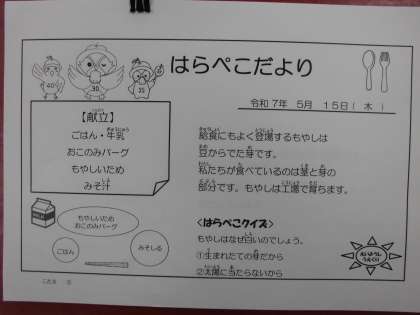 はらぺこだより
令和7年 5月 15日(木)
40
30
35
【献立】
ごはん・牛乳
おこのみバーグ
もやしいため
みそ汁
給食にもよく登場するもやしは
豆からでた芽です。
私たちが食べているのは茎と芽の
部分です。もやしは工場で育ちます。
もやしいため
おこのみバーグ
ごはん
みそしる
<はらぺこクイズ>
もやしはなぜ白いのでしょう。
①生まれたての芽だから
②太陽に当たらないから